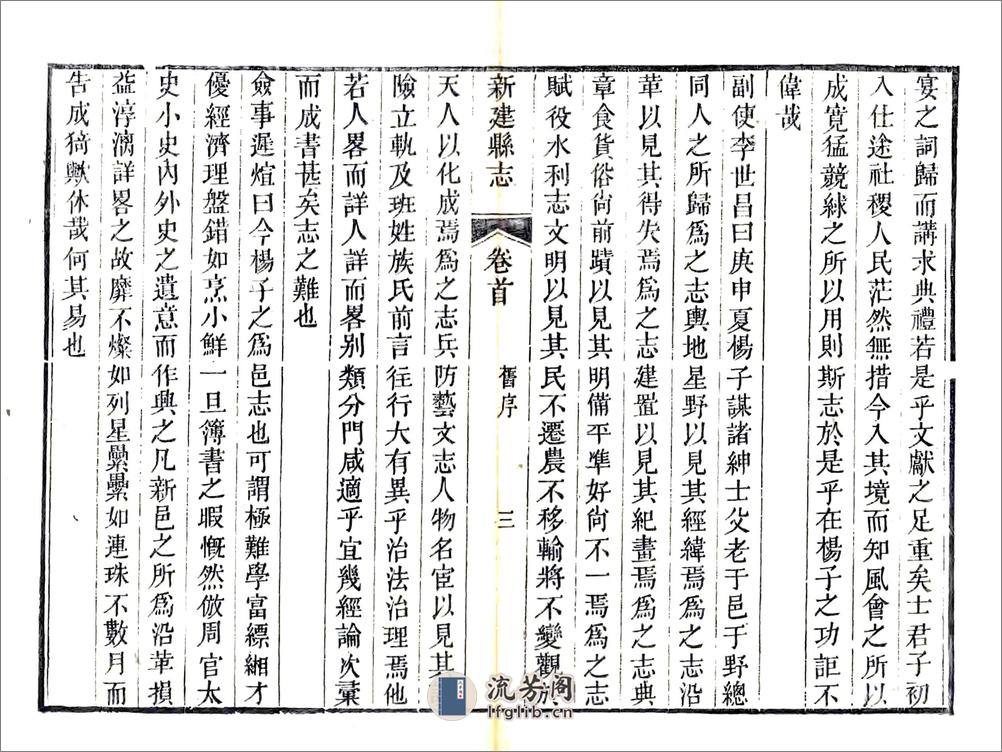 宴之詞歸而講求典禮若是乎文獻之足重矣士君子初
入仕途社稷人民茫然無措今入其境而知風會之所以
成寛猛競絿之所以用則斯志於是乎在楊子之功詎不
偉哉
副使李世昌曰庚申夏楊子謀諸紳士父老于邑于野總
同人之所歸爲之志輿地星野以見其經緯焉爲之志沿
革以見其得失焉爲之志建置以見其紀畫焉爲之志典
章食貨俗尚前蹟以見其明備平準好尚不一焉爲之志
賦役水利志文明以見其民不遷農不移輸將不變觀於
新建縣志
卷首
舊序
三
天人以化成焉爲之志兵防藝文志人物名宦以見其
險立軌及班姓族氏前言往行大有異乎治法治理焉他
若人畧而詳人詳而畧别類分門咸適乎宜幾經論次彙
而成書甚矣志之難也
僉事遲煊曰今楊子之爲邑志也可謂極難學富縹緗才
優經濟理盤錯如烹小鮮一旦簿書之暇慨然倣周官太
史小史內外史之遺意而作興之凡新邑之所爲沿革損
益淳漓詳畧之故靡不燦如列星纍纍如連珠不數月而
告成猗歟休哉何其易也
流芳阁
lfglib.cn